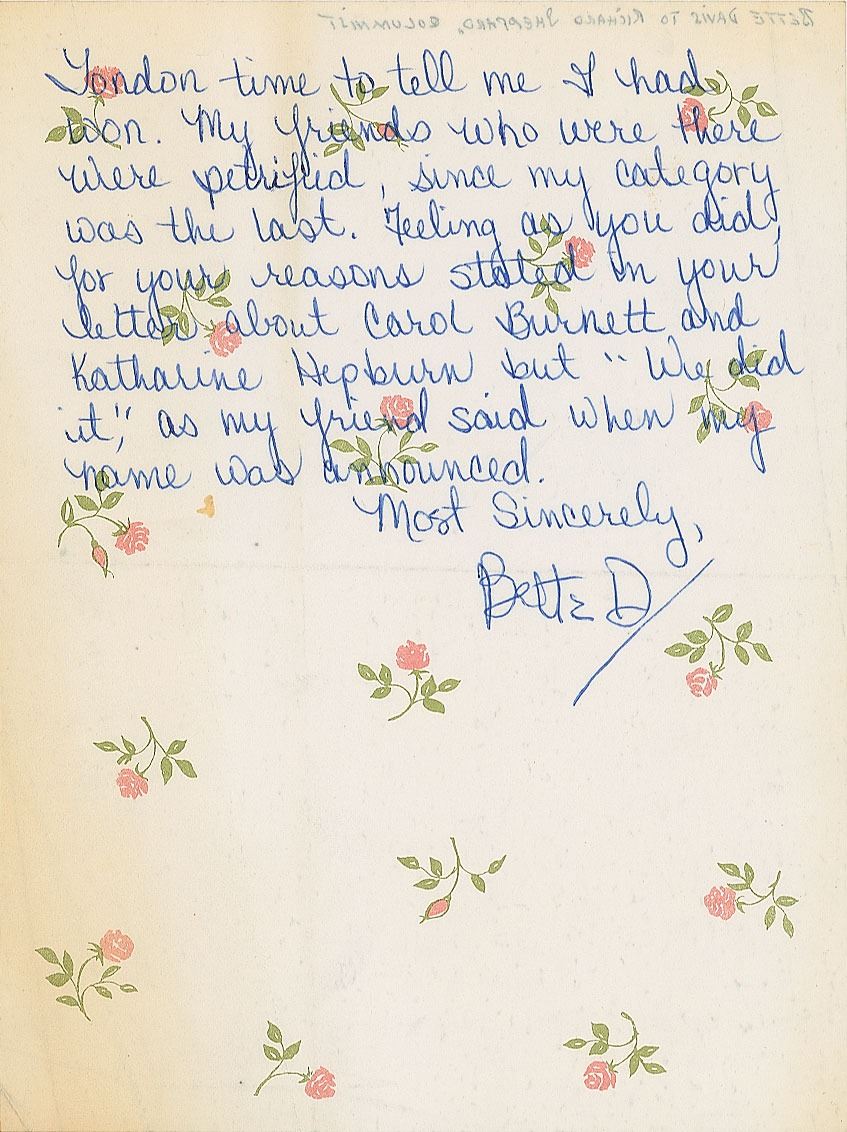 BETTE DAVIS TO RICHARD SHEPPARD, COLUMNIST
London time to tell me I had
won. My friends who were there
were petrified, since my category
was the last. Feeling as you did,
for your reasons stated in your
letter about Carol Burnett and
Katharine Hepburn but "We did
it", as my friend said when my
name was announced.
Most Sincerely,
Bette D